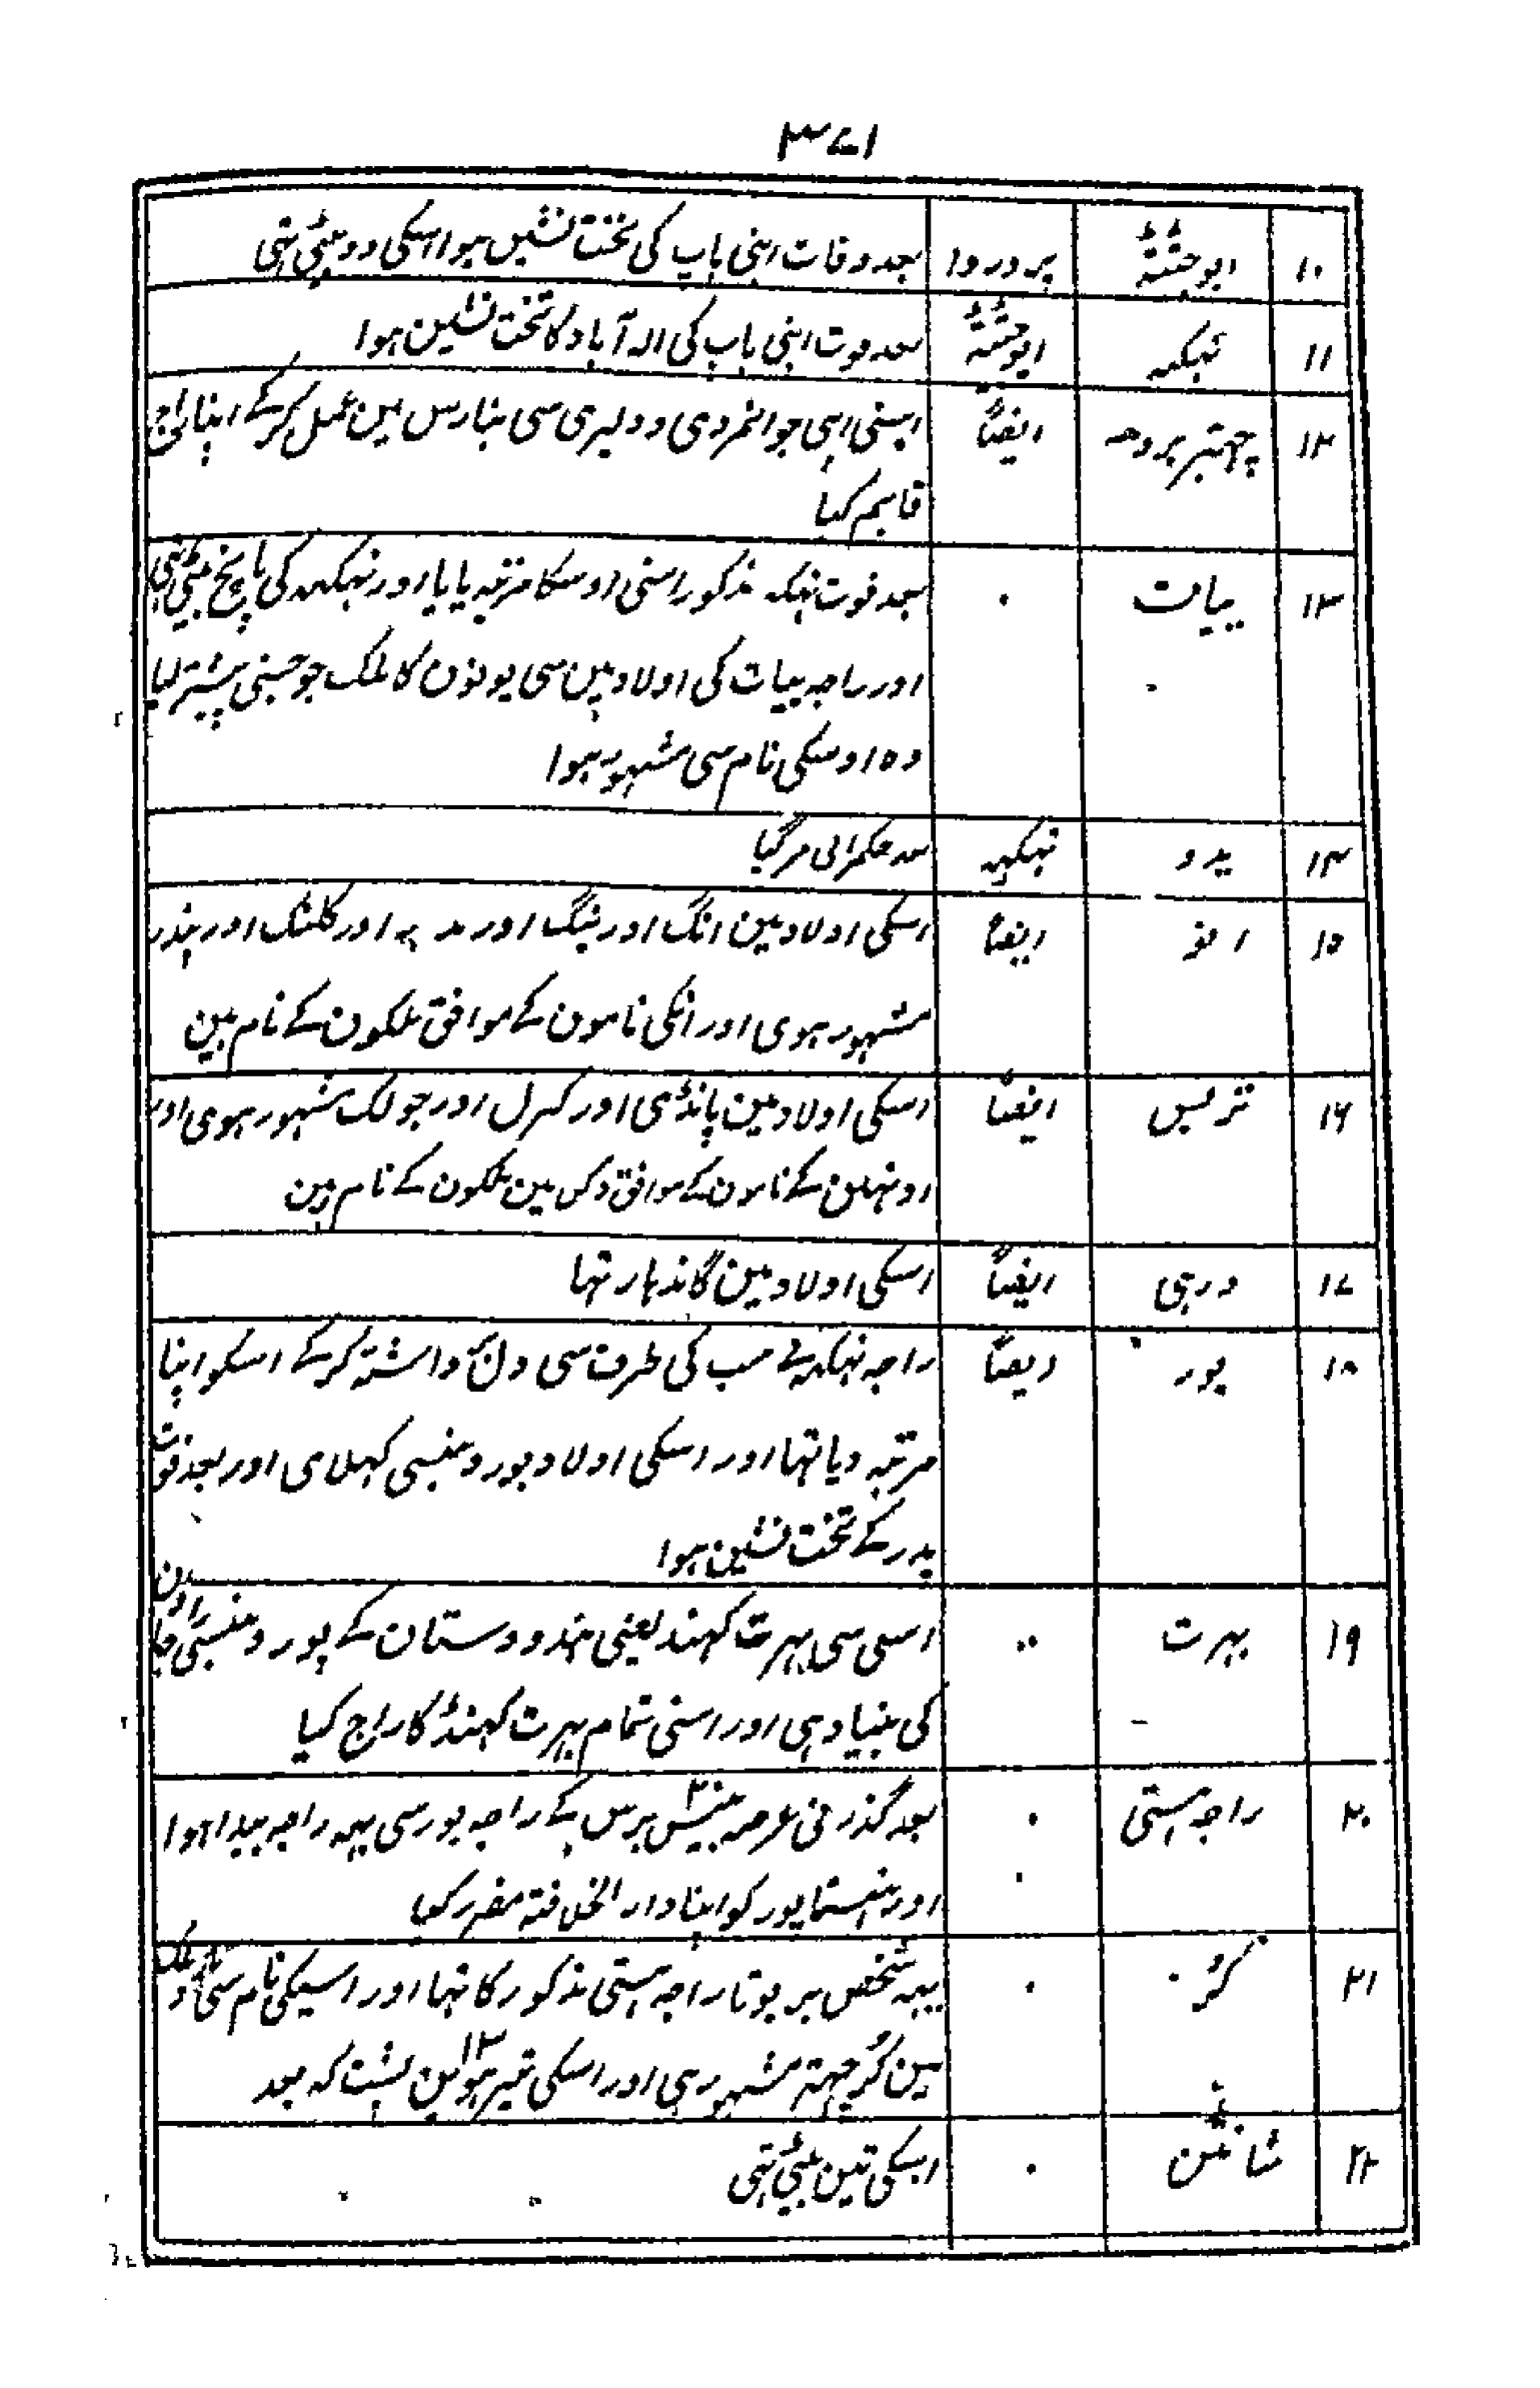 ۳۷۱
۱۰ ابوجشٹہ پروروا بعد وفات اپنی باپ کی تخت نشین ہوا اسکی دو بیٹی تہی
۱۱ نہکہہ ابوجشٹہ بعد موت اپنی باپ کی الہ آباد کا تخت نشین ہوا
۱۲ چہتر بردہہ ایضاً اسنی اپنی جوانمردی و دلیری سی بنارس مین عمل کرکے اپنا راج
قایم کیا
۱۳ بیات ۰ بعد فوت نہکہہ مذکور اسنی اوسکا مرتبہ پایا اور نہکہہ کی پانچ بیٹی تہی
اور راجہ بیات کی اولاد مین سی یونون کا ملک جو جسنی پیشتر لیا
وہ اوسکی نام سی مشہور ہوا
۱۴ یدو نہکہہ بعد حکمرانی مر گیا
۱۵ انو ایضاً اسکی اولاد مین انگ اور بنگ اور مد یہ اور کلنگ اور پنڈر
مشہور ہوی اور انکی نامون کے موافق ملکون کے نام ہین
۱۶ تربس ایضاً اسکی اولاد مین پانڈی اور کیرل اور چولک مشہور ہوی اور
اونہین کے نامون کے موافق دکن مین ملکون کے نام ہین
۱۷ درہی ایضاً اسکی اولاد مین گاندہار تہا
۱۸ پور ایضاً راجہ نہکہہ نے سب کی طرف سی دل برداشتہ کرکے اسکو اپنا
مرتبہ دیا تہا اور اسکی اولاد پورو بنسی کہلای اور بعد فوت
پدر کے تخت نشین ہوا
۱۹ بہرت ۰۰ اسی سی بہرت کہنڈ یعنی ہندوستان کے پورو بنسی راجاون
کی بنیاد ہی اور اسنی تمام بہرت کہنڈ کا راج کیا
۲۰ راجہ ہستی ۰ بعد گذرنی عرصہ بیس برس کے راجہ پور سی یہہ راجہ پیدا ہوا
اور ہنستاپور کو اپنا دار الخلافتہ مقرر کیا
۲۱ کُر ۰ یہہ شخص پر پوتا راجہ ہستی مذکور کا تہا اور اسیکی نام سی ملک
مین کُر چہتر مشہور ہی اور اسکی تیرہوین ۱۳ پشت کہ بعد
۲۲ شانتن ۰ اسکی تین بیٹی تہی